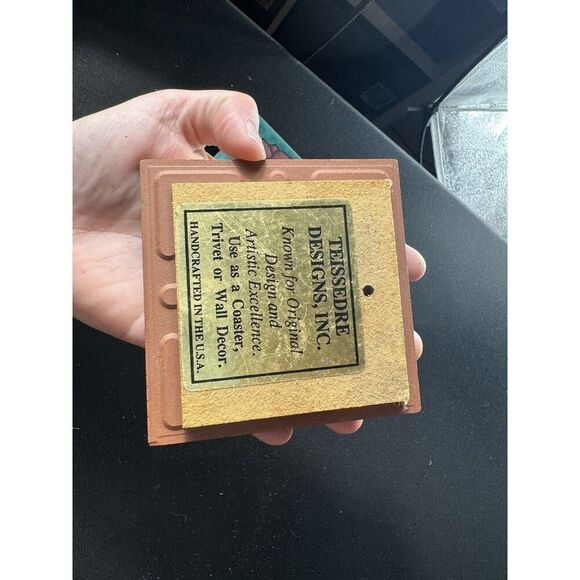 TEISSEDRE
DESIGNS, INC.
Known for Original
Design and
Artistic Excellence.
Use as a Coaster,
Trivet or Wall Decor.
HANDCRAFTED IN THE U.S.A.